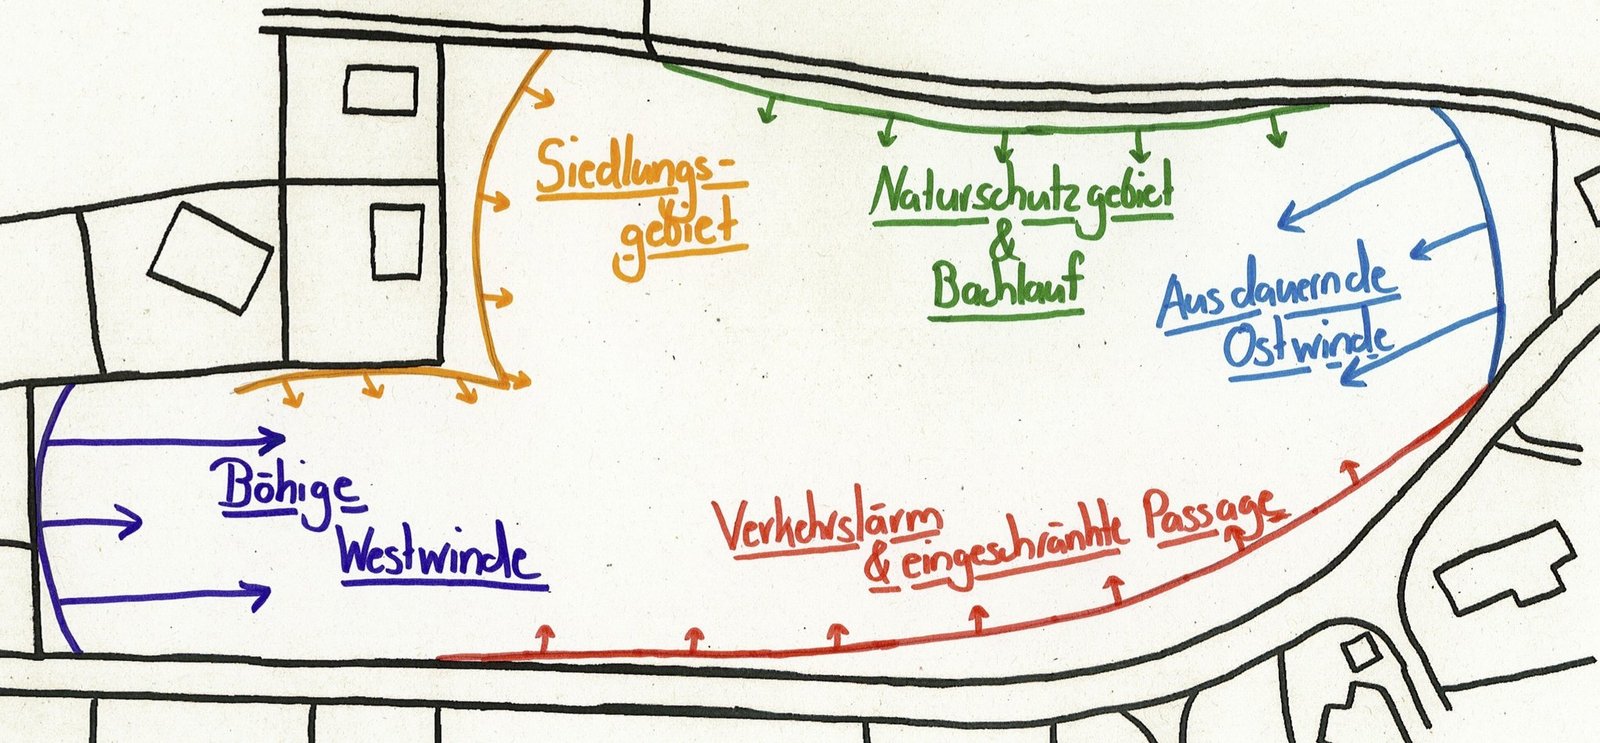 Siedlungs-
gebiet
Naturschutzgebiet
&
Bachlauf
Ausdauernde
Ostwinde
Böhige
Westwinde
Verkehrslärm
& eingeschränkte Passage